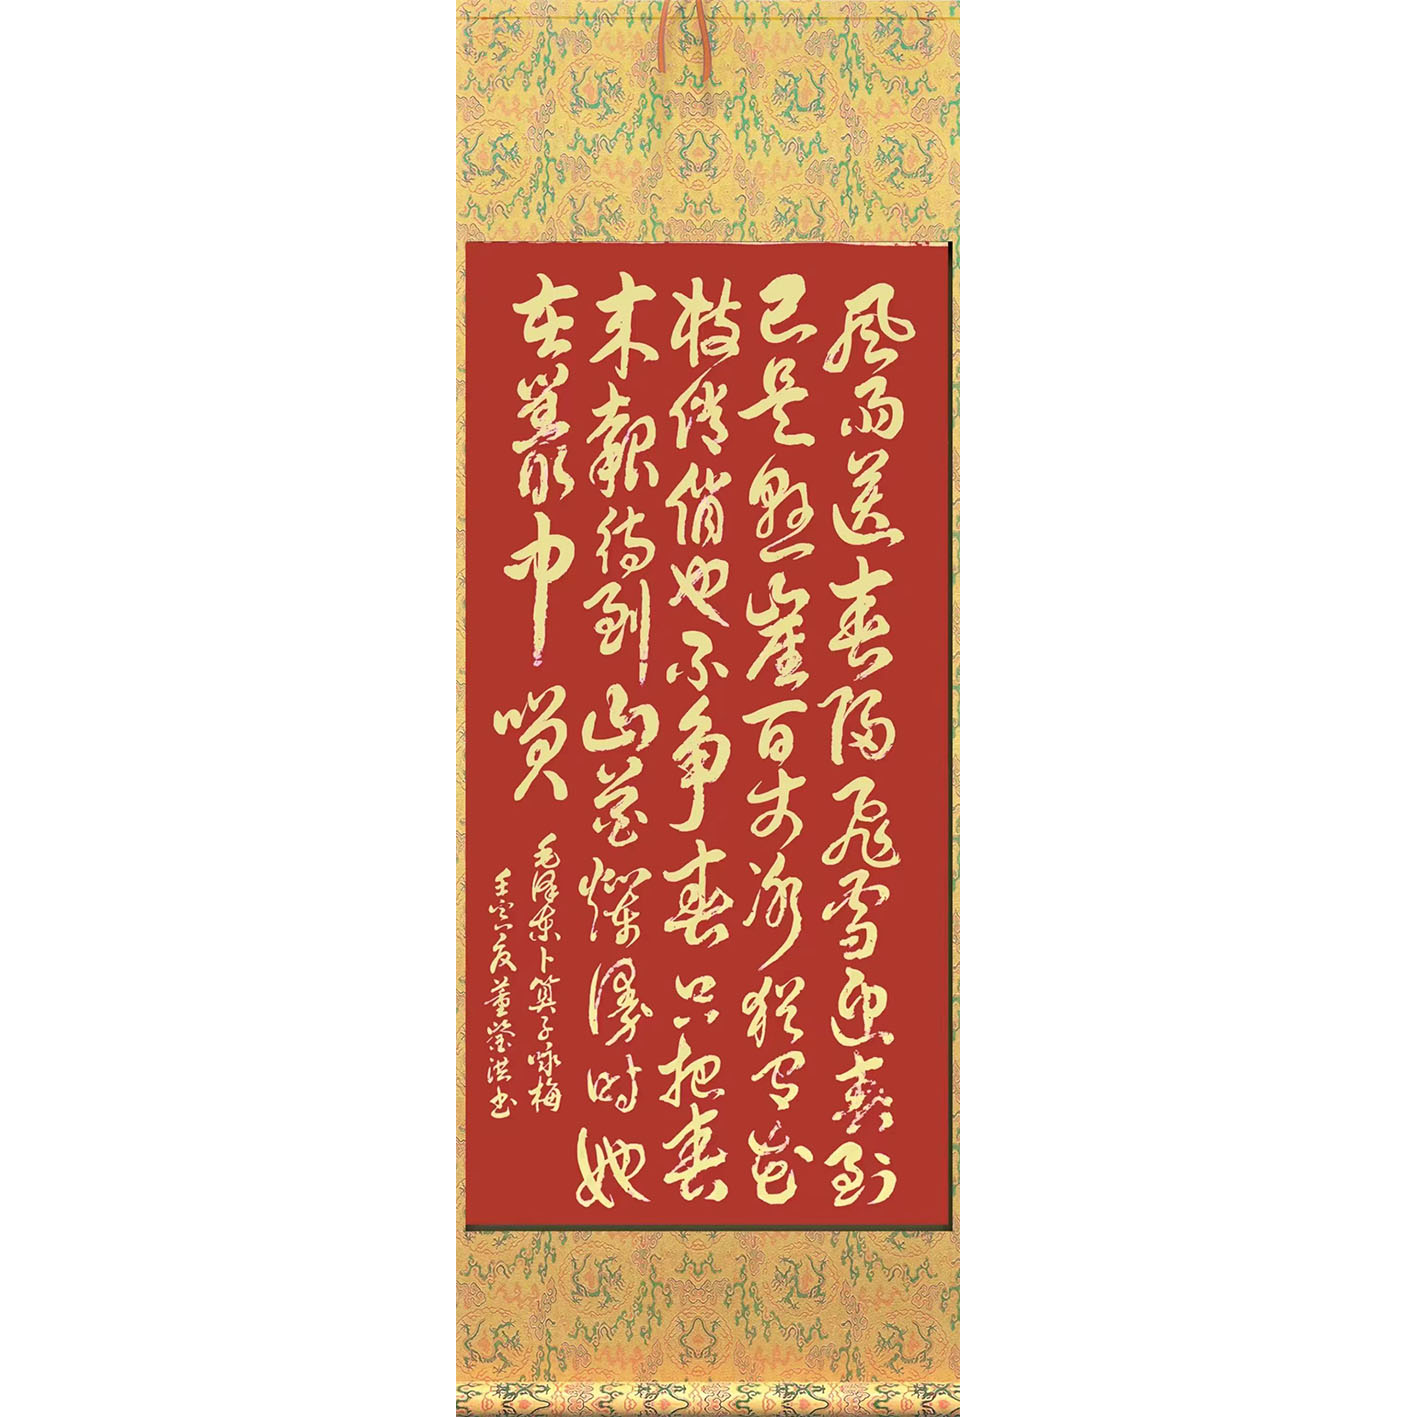 風雨送春歸飛雪迎春到
已是懸崖百丈冰猶有花
枝俏俏也不争春只把春
来報待到山花爛漫時她
在叢中笑
毛澤東卜算子咏梅
壬寅夏董瑩洪书